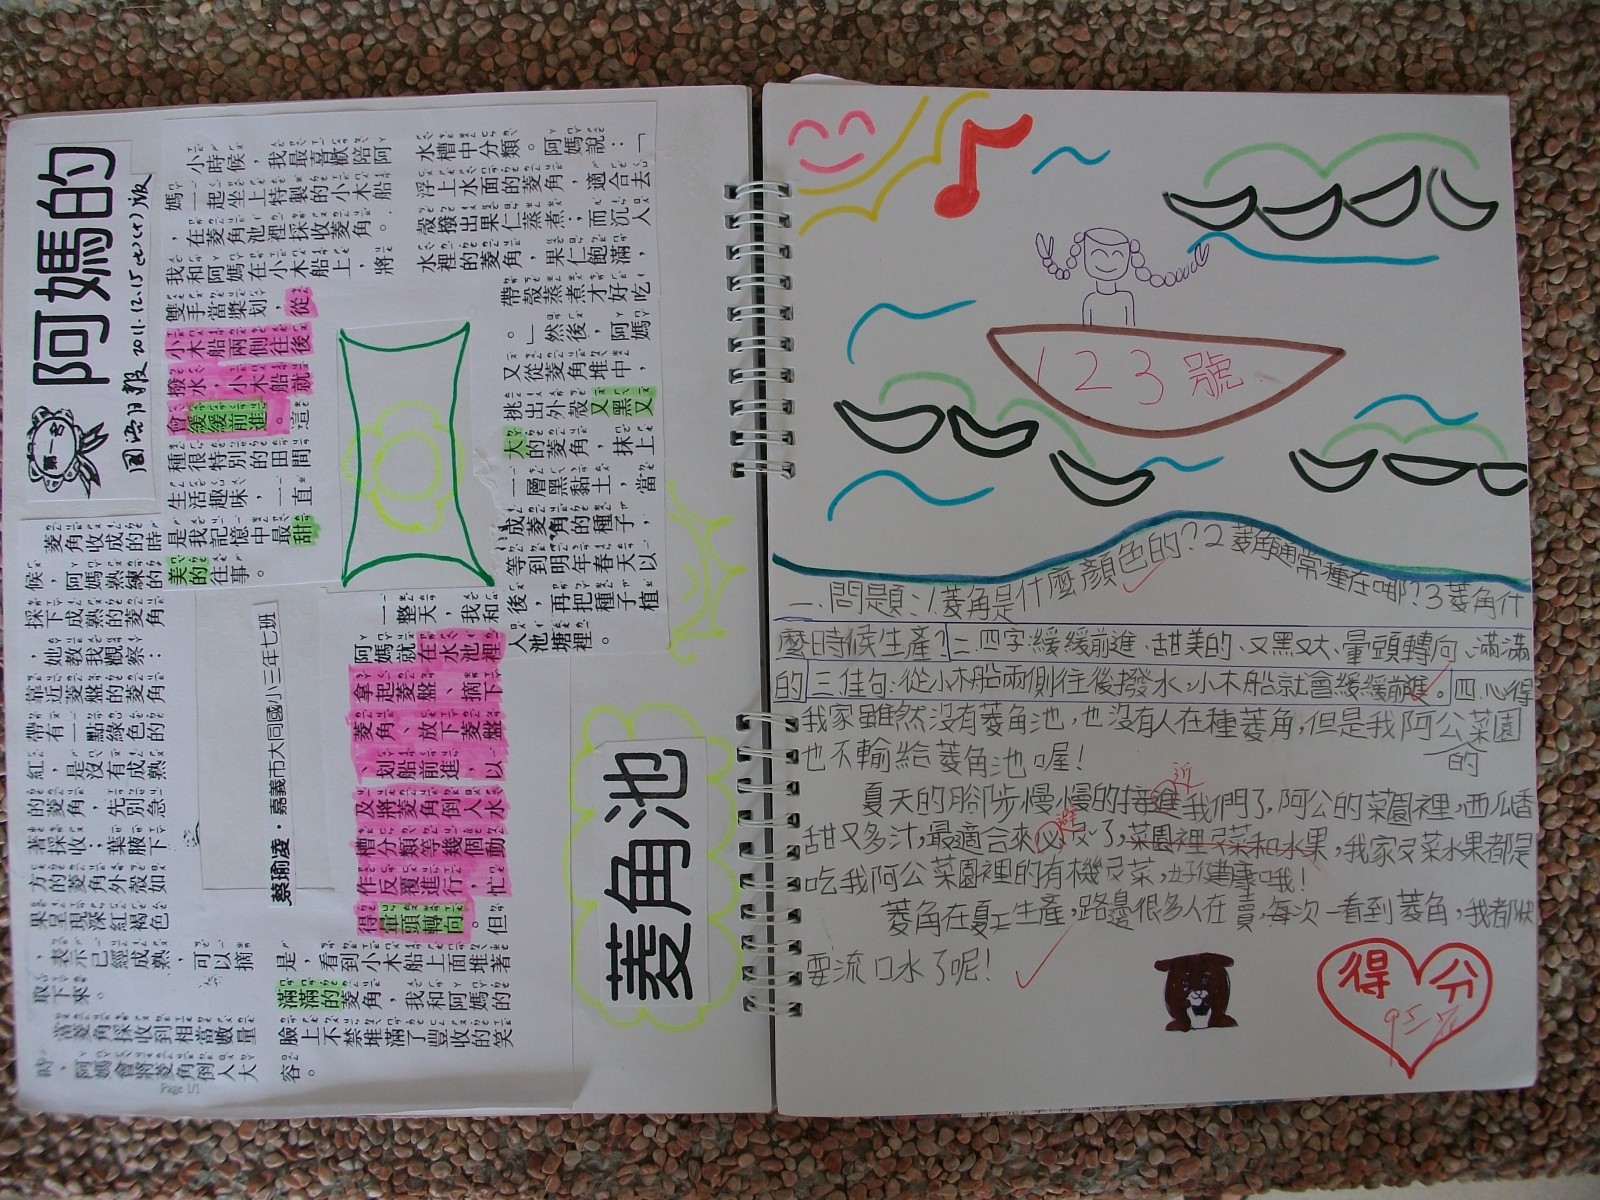 阿媽的
菱角池
第一名
國語日報 2011.12.15(七)版
蔡瑜凌‧嘉義市大同國小三年七班
小時候，我最喜歡陪阿
媽一起坐上特製的小木船
，在菱角池裡採收菱角。
我和阿媽在小木船上，將
雙手當槳划，從
小木船兩側往後
撥水，小木船就
會緩緩前進。這
種很特別的田間
生活趣味，一直
是我記憶中最甜
美的往事。
菱角收成的時
候，阿媽熟練的
採下成熟的菱角
，她教我觀察：
靠近菱盤的菱角
帶有一點綠色的
紅，是沒有成熟
的菱角，先別急
著採收；葉腋下
方的菱角外殼如
果呈現深紅褐色
，表示已經成熟，可以摘
取下來。
當菱角採收到相當數量
時，阿媽會將菱角倒入大
水槽中分類。阿媽說：「
浮上水面的菱角，適合去
殼撥出果仁蒸煮；而沉入
水裡的菱角，果仁飽滿，
帶殼蒸煮才好吃
。」然後，阿媽
又從菱角堆中，
挑出外殼又黑又
大的菱角，抹上
一層黑黏土，當
成菱角的種子，
等到明年春天以
後，再把種子植
入池塘裡。
一整天，我和
阿媽就在水池裡
拿起菱盤、摘下
菱角、放下菱盤
、划船前進，以
及將菱角倒入水
槽分類等幾個動
作反覆進行，忙
得暈頭轉向。但
是，看到小木船上面堆著
滿滿的菱角，我和阿媽的
臉上不禁堆滿了豐收的笑
容。
123號
一.問題:1菱角是什麼顏色的?2菱角通常種在哪?3菱角什
麼時候生產?二.四字:緩緩前進、甜美的、又黑又大、暈頭轉向、滿滿
的 三.佳句:從小木船兩側往後撥水,小木船就會緩緩前進。四.心得
我家雖然沒有菱角池,也沒有人在種菱角,但是我阿公的菜園
也不輸給菱角池喔!
夏天的腳步慢慢的接進近我們了,阿公的菜園裡,西瓜香
甜又多汁,最適合來避了,菜園裡和水果,我家水果都是
吃我阿公菜園裡的有機菜,好健康哦!
菱角在夏天生產,路邊很多人在賣,每次一看到菱角,我都快
要流口水了呢!
得分
95